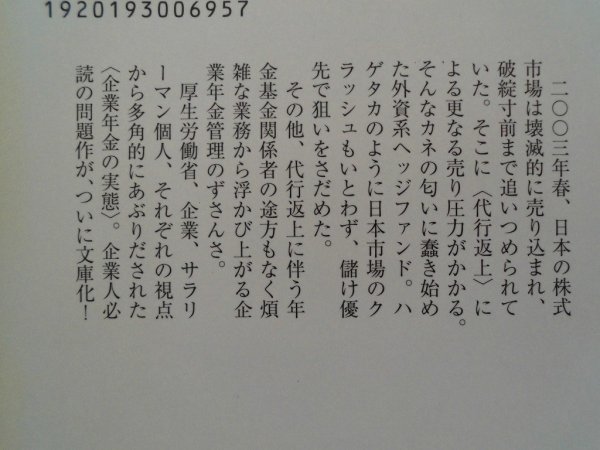 1920193006957
二〇〇三年春、日本の株式
市場は壊滅的に売り込まれ、
破綻寸前まで追いつめられて
いた。そこに〈代行返上〉に
よる更なる売り圧力がかかる。
そんなカネの匂いに蠢き始め
た外資系ヘッジファンド。ハ
ゲタカのように日本市場のク
ラッシュもいとわず、儲け優
先で狙いをさだめた。
その他、代行返上に伴う年
金基金関係者の途方もなく煩
雑な業務から浮かび上がる企
業年金管理のずさんさ。
厚生労働省、企業、サラリ
ーマン個人、それぞれの視点
から多角的にあぶりだされた
〈企業年金の実態〉。企業人必
読の問題作が、ついに文庫化！